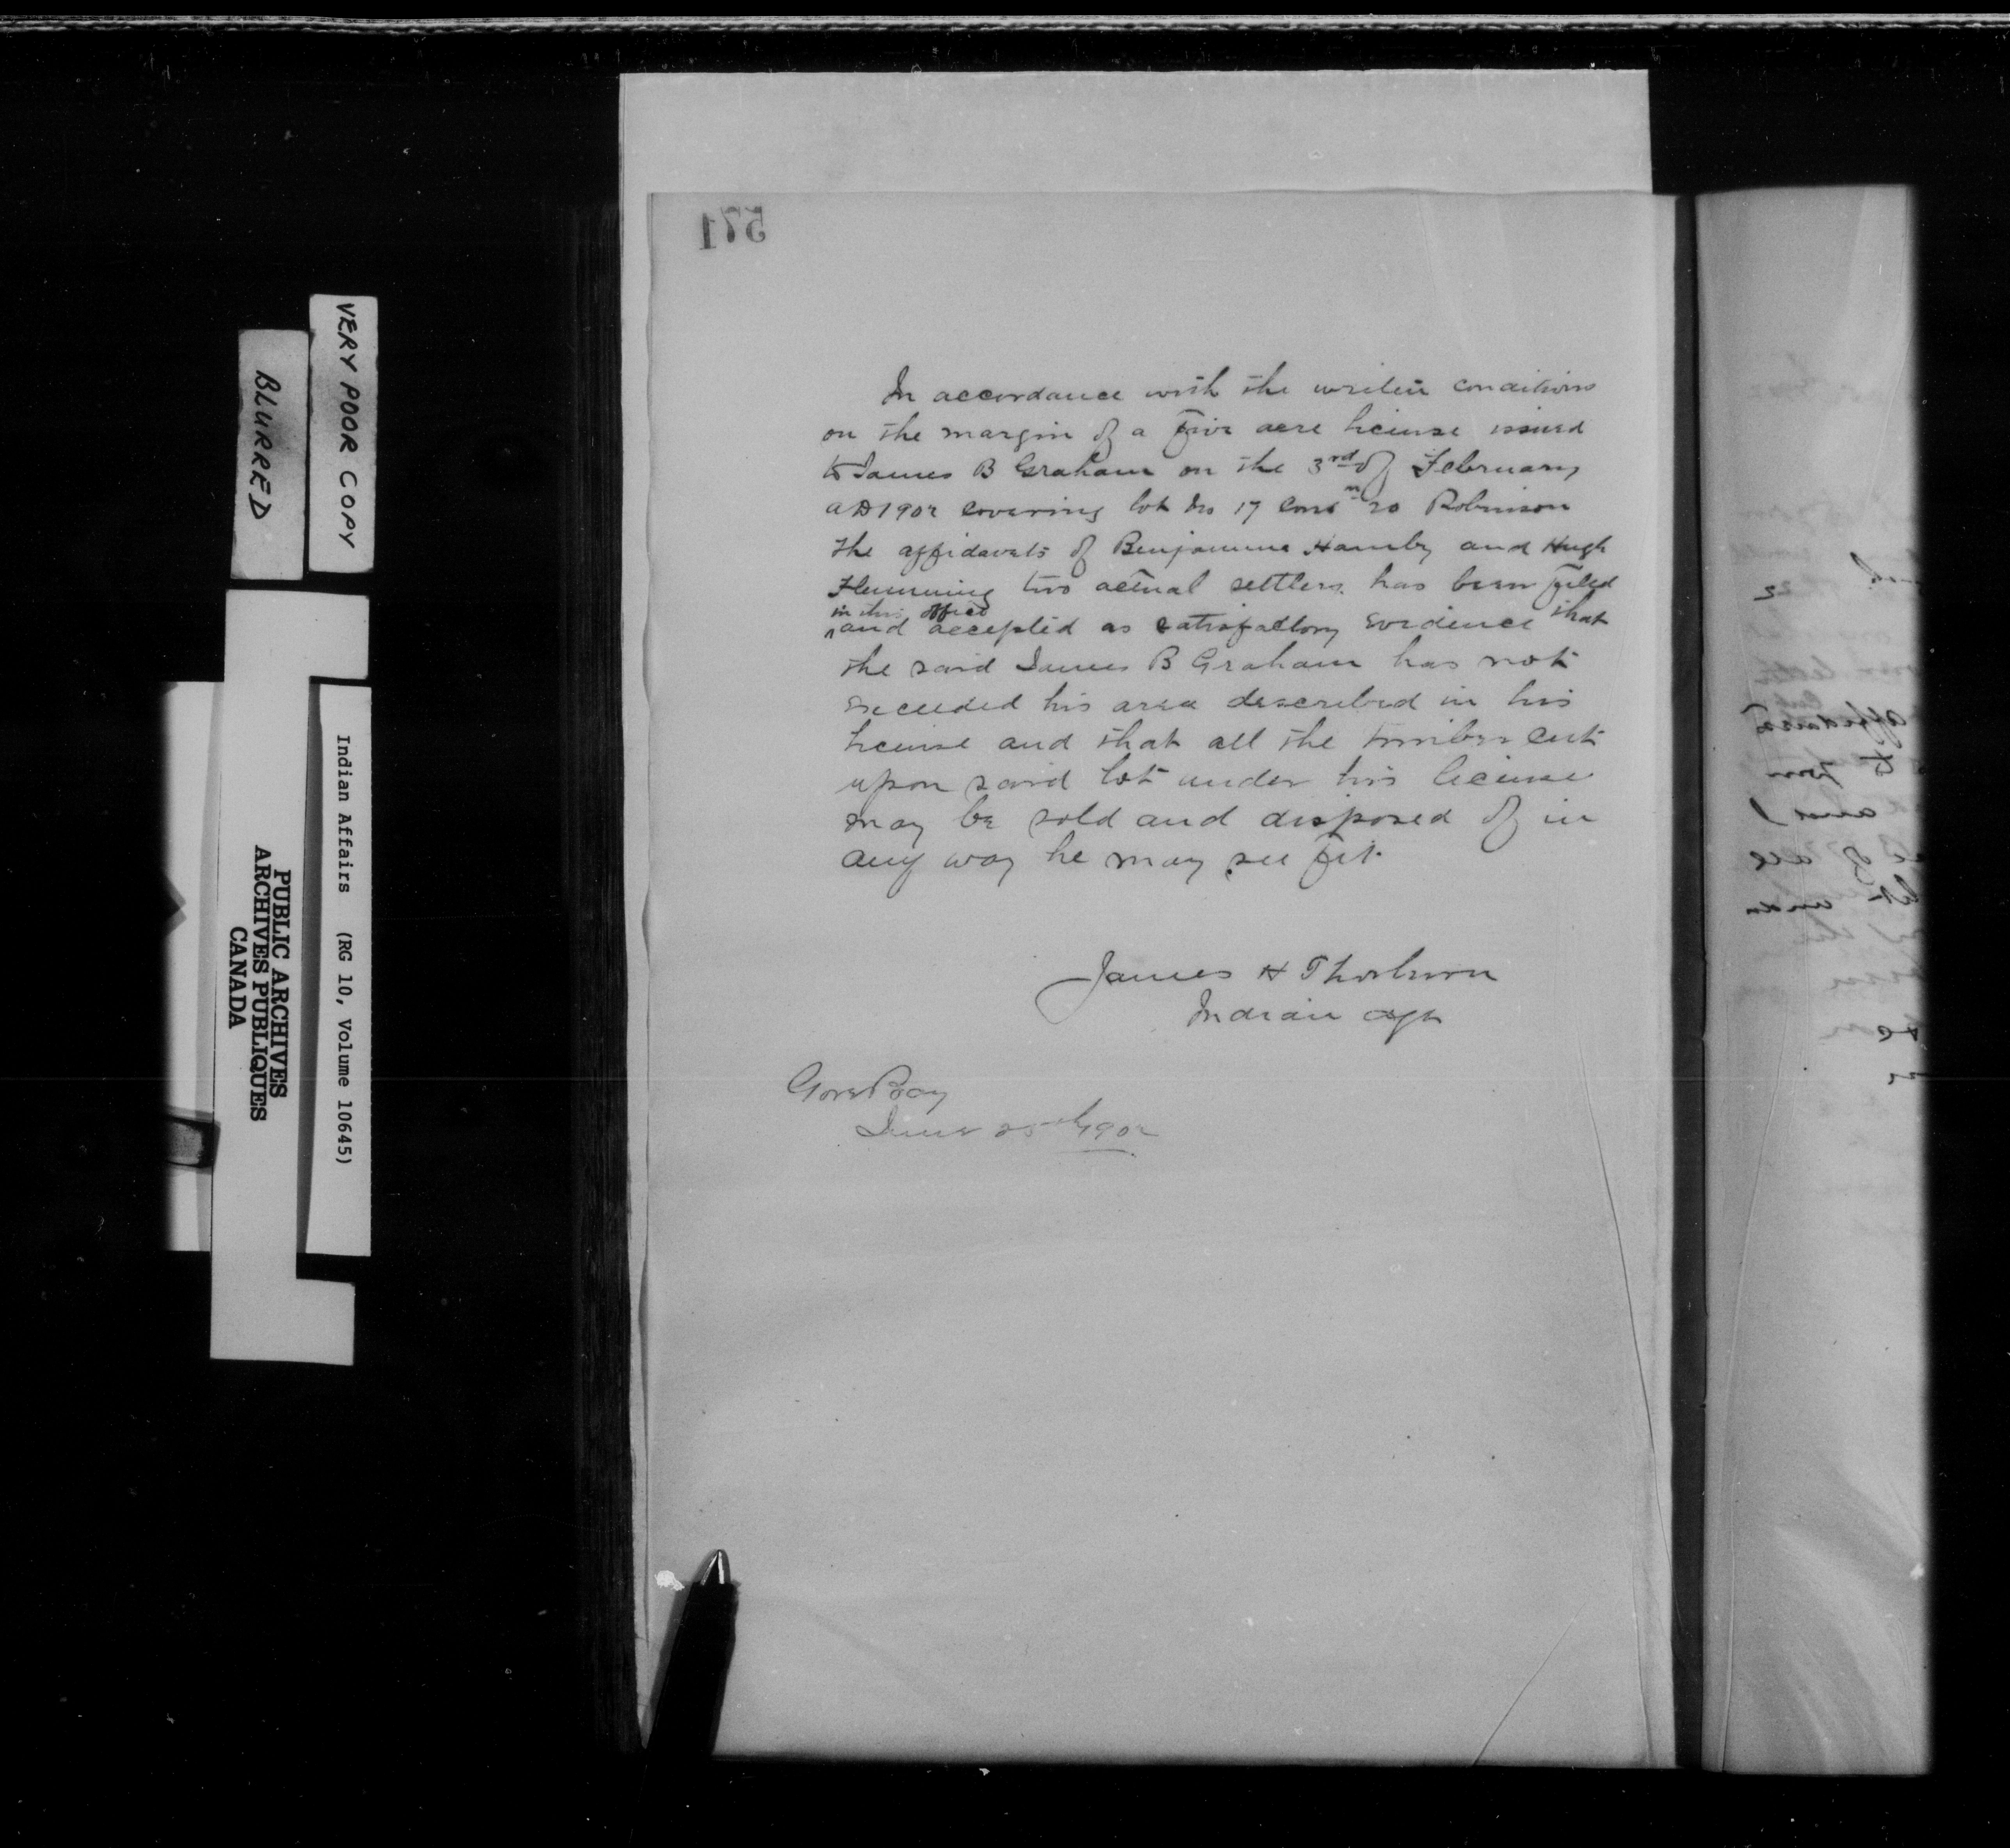 VERY POOR COPY
BLURRED
Indian Affairs (RG 10, Volume 10645)
PUBLIC ARCHIVES
ARCHIVES PUBLIQUES
CANADA
571
In accordance with the writen conditions
on the margin of a five acre license issued
to James B Graham on the 3rd of February
AD 1902 covering lot No 17 Conn 20 Robinson
the affidavats of Benjamine Hamby and Hugh
Flemming two actual settlers has been filed
in this office
and accepted as satisfactory evidence that
the said James B Graham has not
exceeded his area described in his
license and that all the timber cut
upon said lot under his license
may be sold and disposed of in
any way he may see fit
James H Thorburn
Indian Agt
Gore Bay
June 25th 1902
affidavit